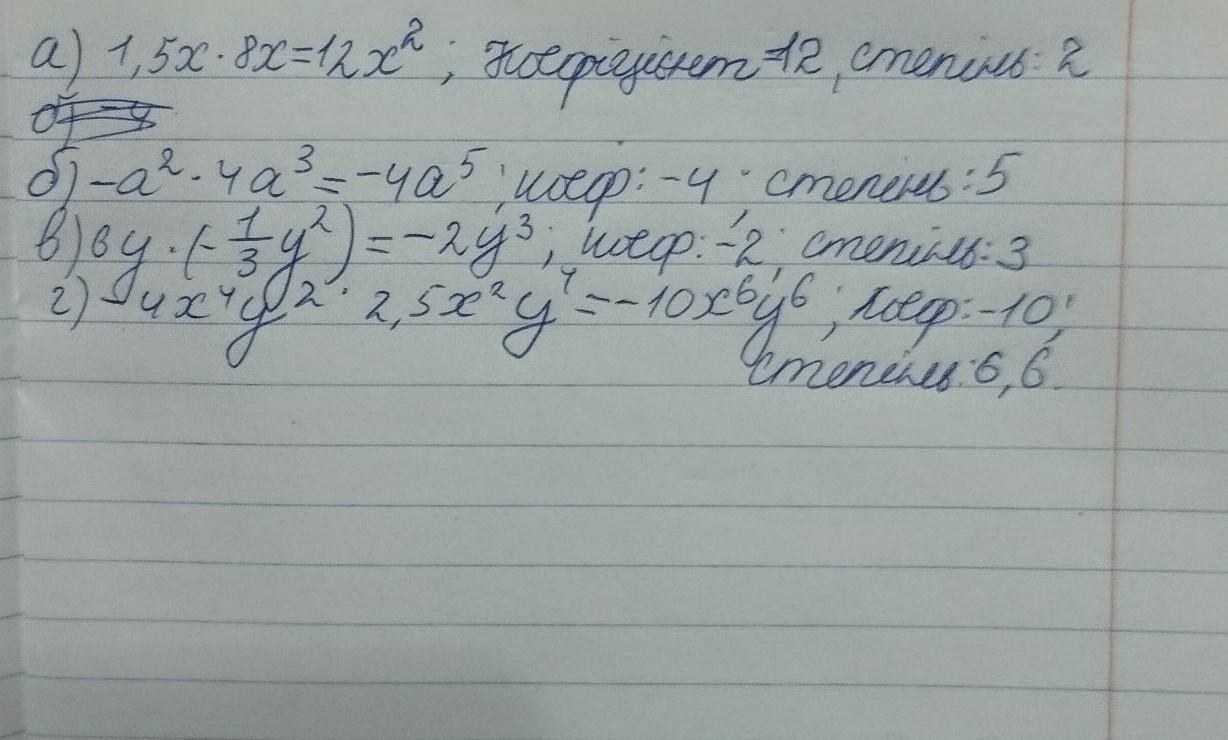 а) 1,5x·8x=12x²; Коефіцієнт=12, степінь: 2
б) -a²·4a³=-4a⁵; коеф: -4; степінь: 5
в) 6y·(-1/3y²)=-2y³; коеф: -2; степінь: 3
г) -4x⁴y²·2,5x²y⁴=-10x⁶y⁶; Коеф: -10;
степінь: 6, 6.